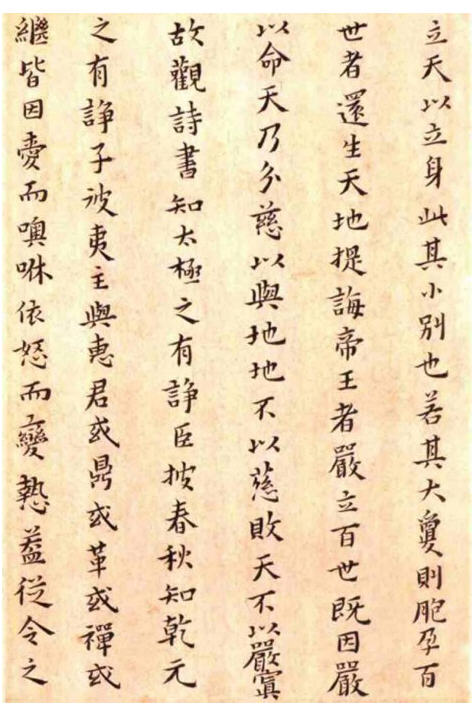 立天以立身此其小別也若其大夐則胞孕百
世者還生天地提誨帝王者嚴立百世既因嚴
以命天乃分慈以與地地不以慈敗天不以嚴寘
故觀詩書知太極之有諍臣披春秋知乾元
之有諍子彼夷主與惠君或鼎或革或禪或
繼皆因愛而噢咻依怒而變熱益從令之